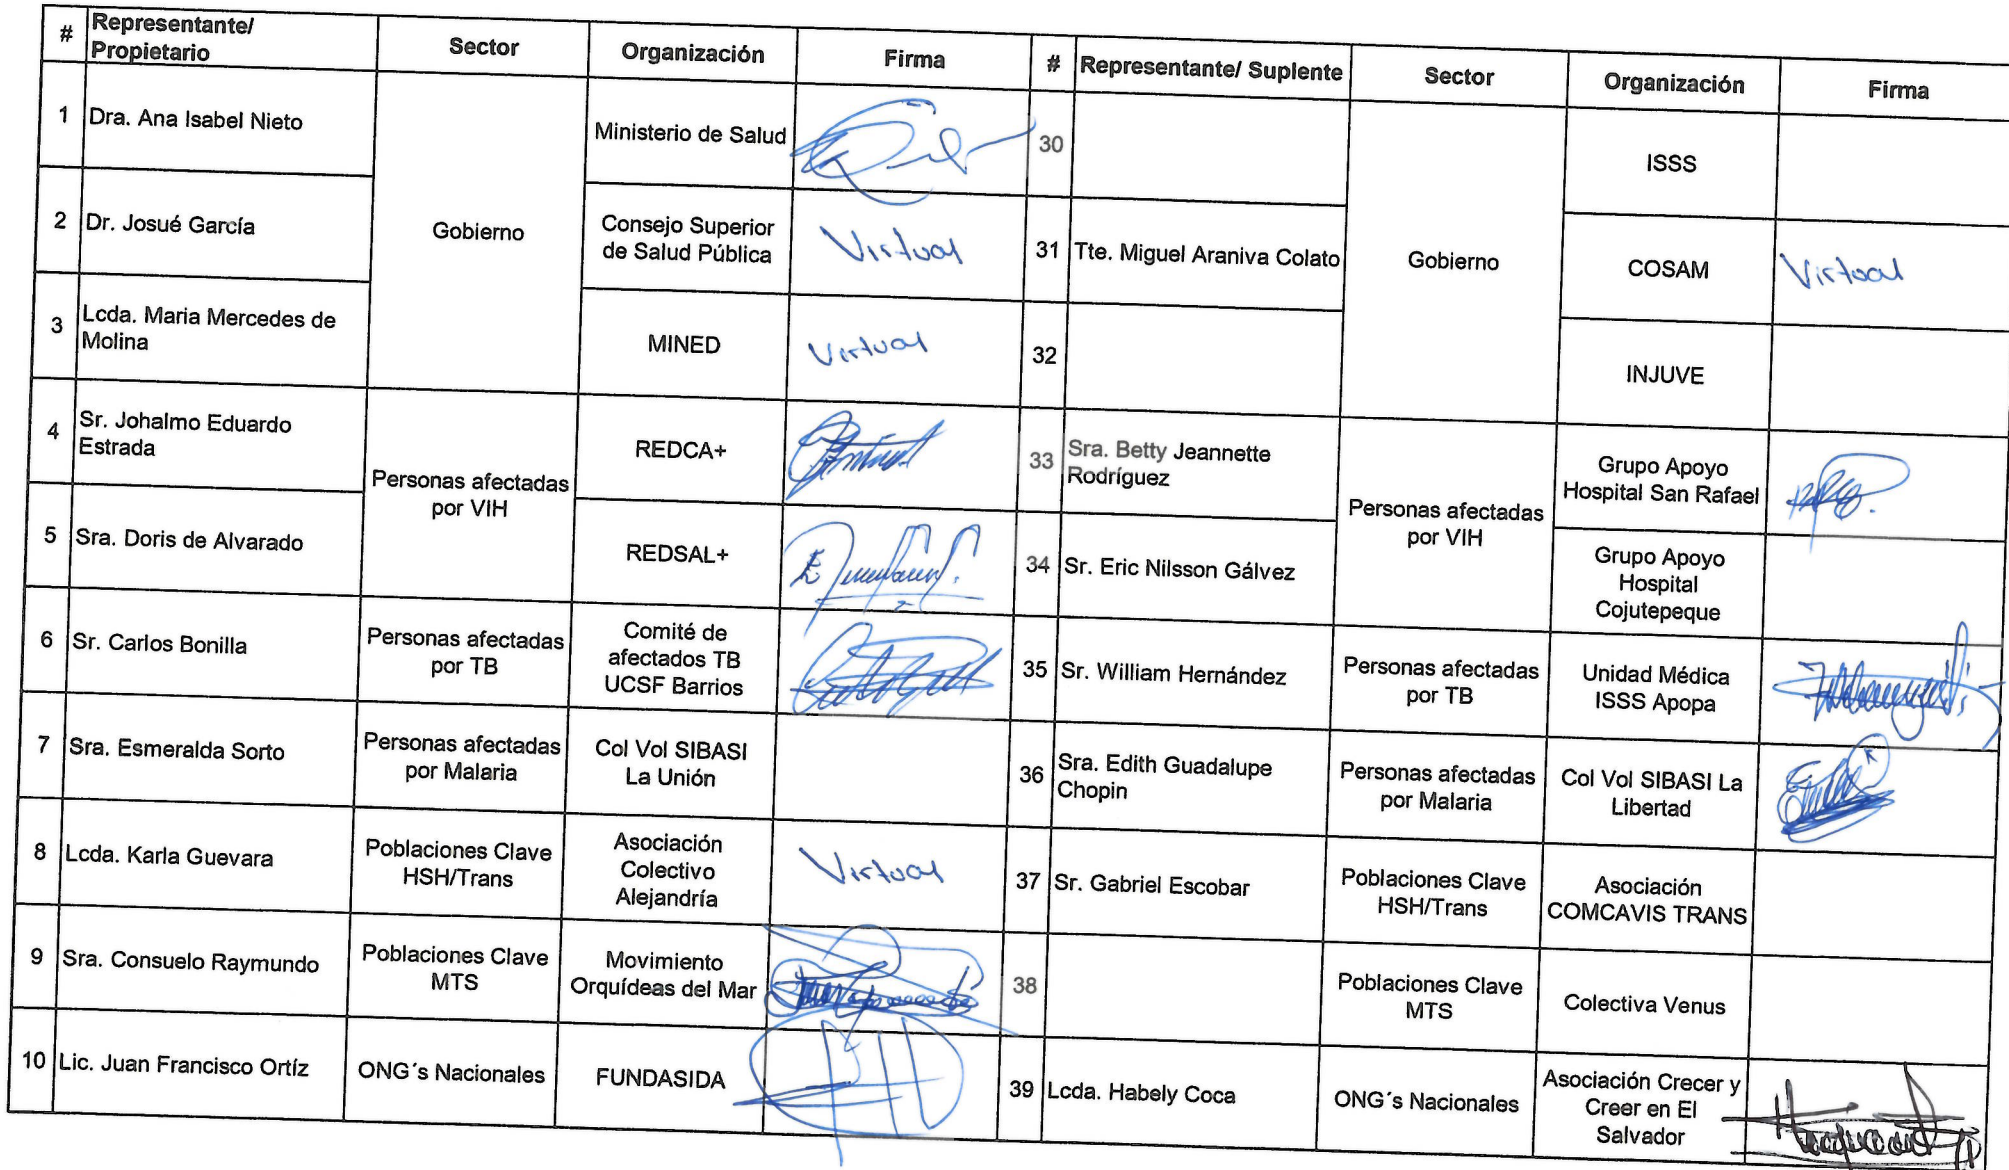 # Representante/ Propietario Sector Organización Firma # Representante/ Suplente Sector Organización Firma
1 Dra. Ana Isabel Nieto Gobierno Ministerio de Salud 30 Gobierno ISSS
2 Dr. Josué García Consejo Superior de Salud Pública Virtual 31 Tte. Miguel Araniva Colato COSAM Virtual
3 Lcda. Maria Mercedes de Molina MINED Virtual 32 INJUVE
4 Sr. Johalmo Eduardo Estrada Personas afectadas por VIH REDCA+ 33 Sra. Betty Jeannette Rodríguez Personas afectadas por VIH Grupo Apoyo Hospital San Rafael
5 Sra. Doris de Alvarado REDSAL+ 34 Sr. Eric Nilsson Gálvez Grupo Apoyo Hospital Cojutepeque
6 Sr. Carlos Bonilla Personas afectadas por TB Comité de afectados TB UCSF Barrios 35 Sr. William Hernández Personas afectadas por TB Unidad Médica ISSS Apopa
7 Sra. Esmeralda Sorto Personas afectadas por Malaria Col Vol SIBASI La Unión 36 Sra. Edith Guadalupe Chopin Personas afectadas por Malaria Col Vol SIBASI La Libertad
8 Lcda. Karla Guevara Poblaciones Clave HSH/Trans Asociación Colectivo Alejandría Virtual 37 Sr. Gabriel Escobar Poblaciones Clave HSH/Trans Asociación COMCAVIS TRANS
9 Sra. Consuelo Raymundo Poblaciones Clave MTS Movimiento Orquídeas del Mar 38 Poblaciones Clave MTS Colectiva Venus
10 Lic. Juan Francisco Ortíz ONG´s Nacionales FUNDASIDA 39 Lcda. Habely Coca ONG´s Nacionales Asociación Crecer y Creer en El Salvador